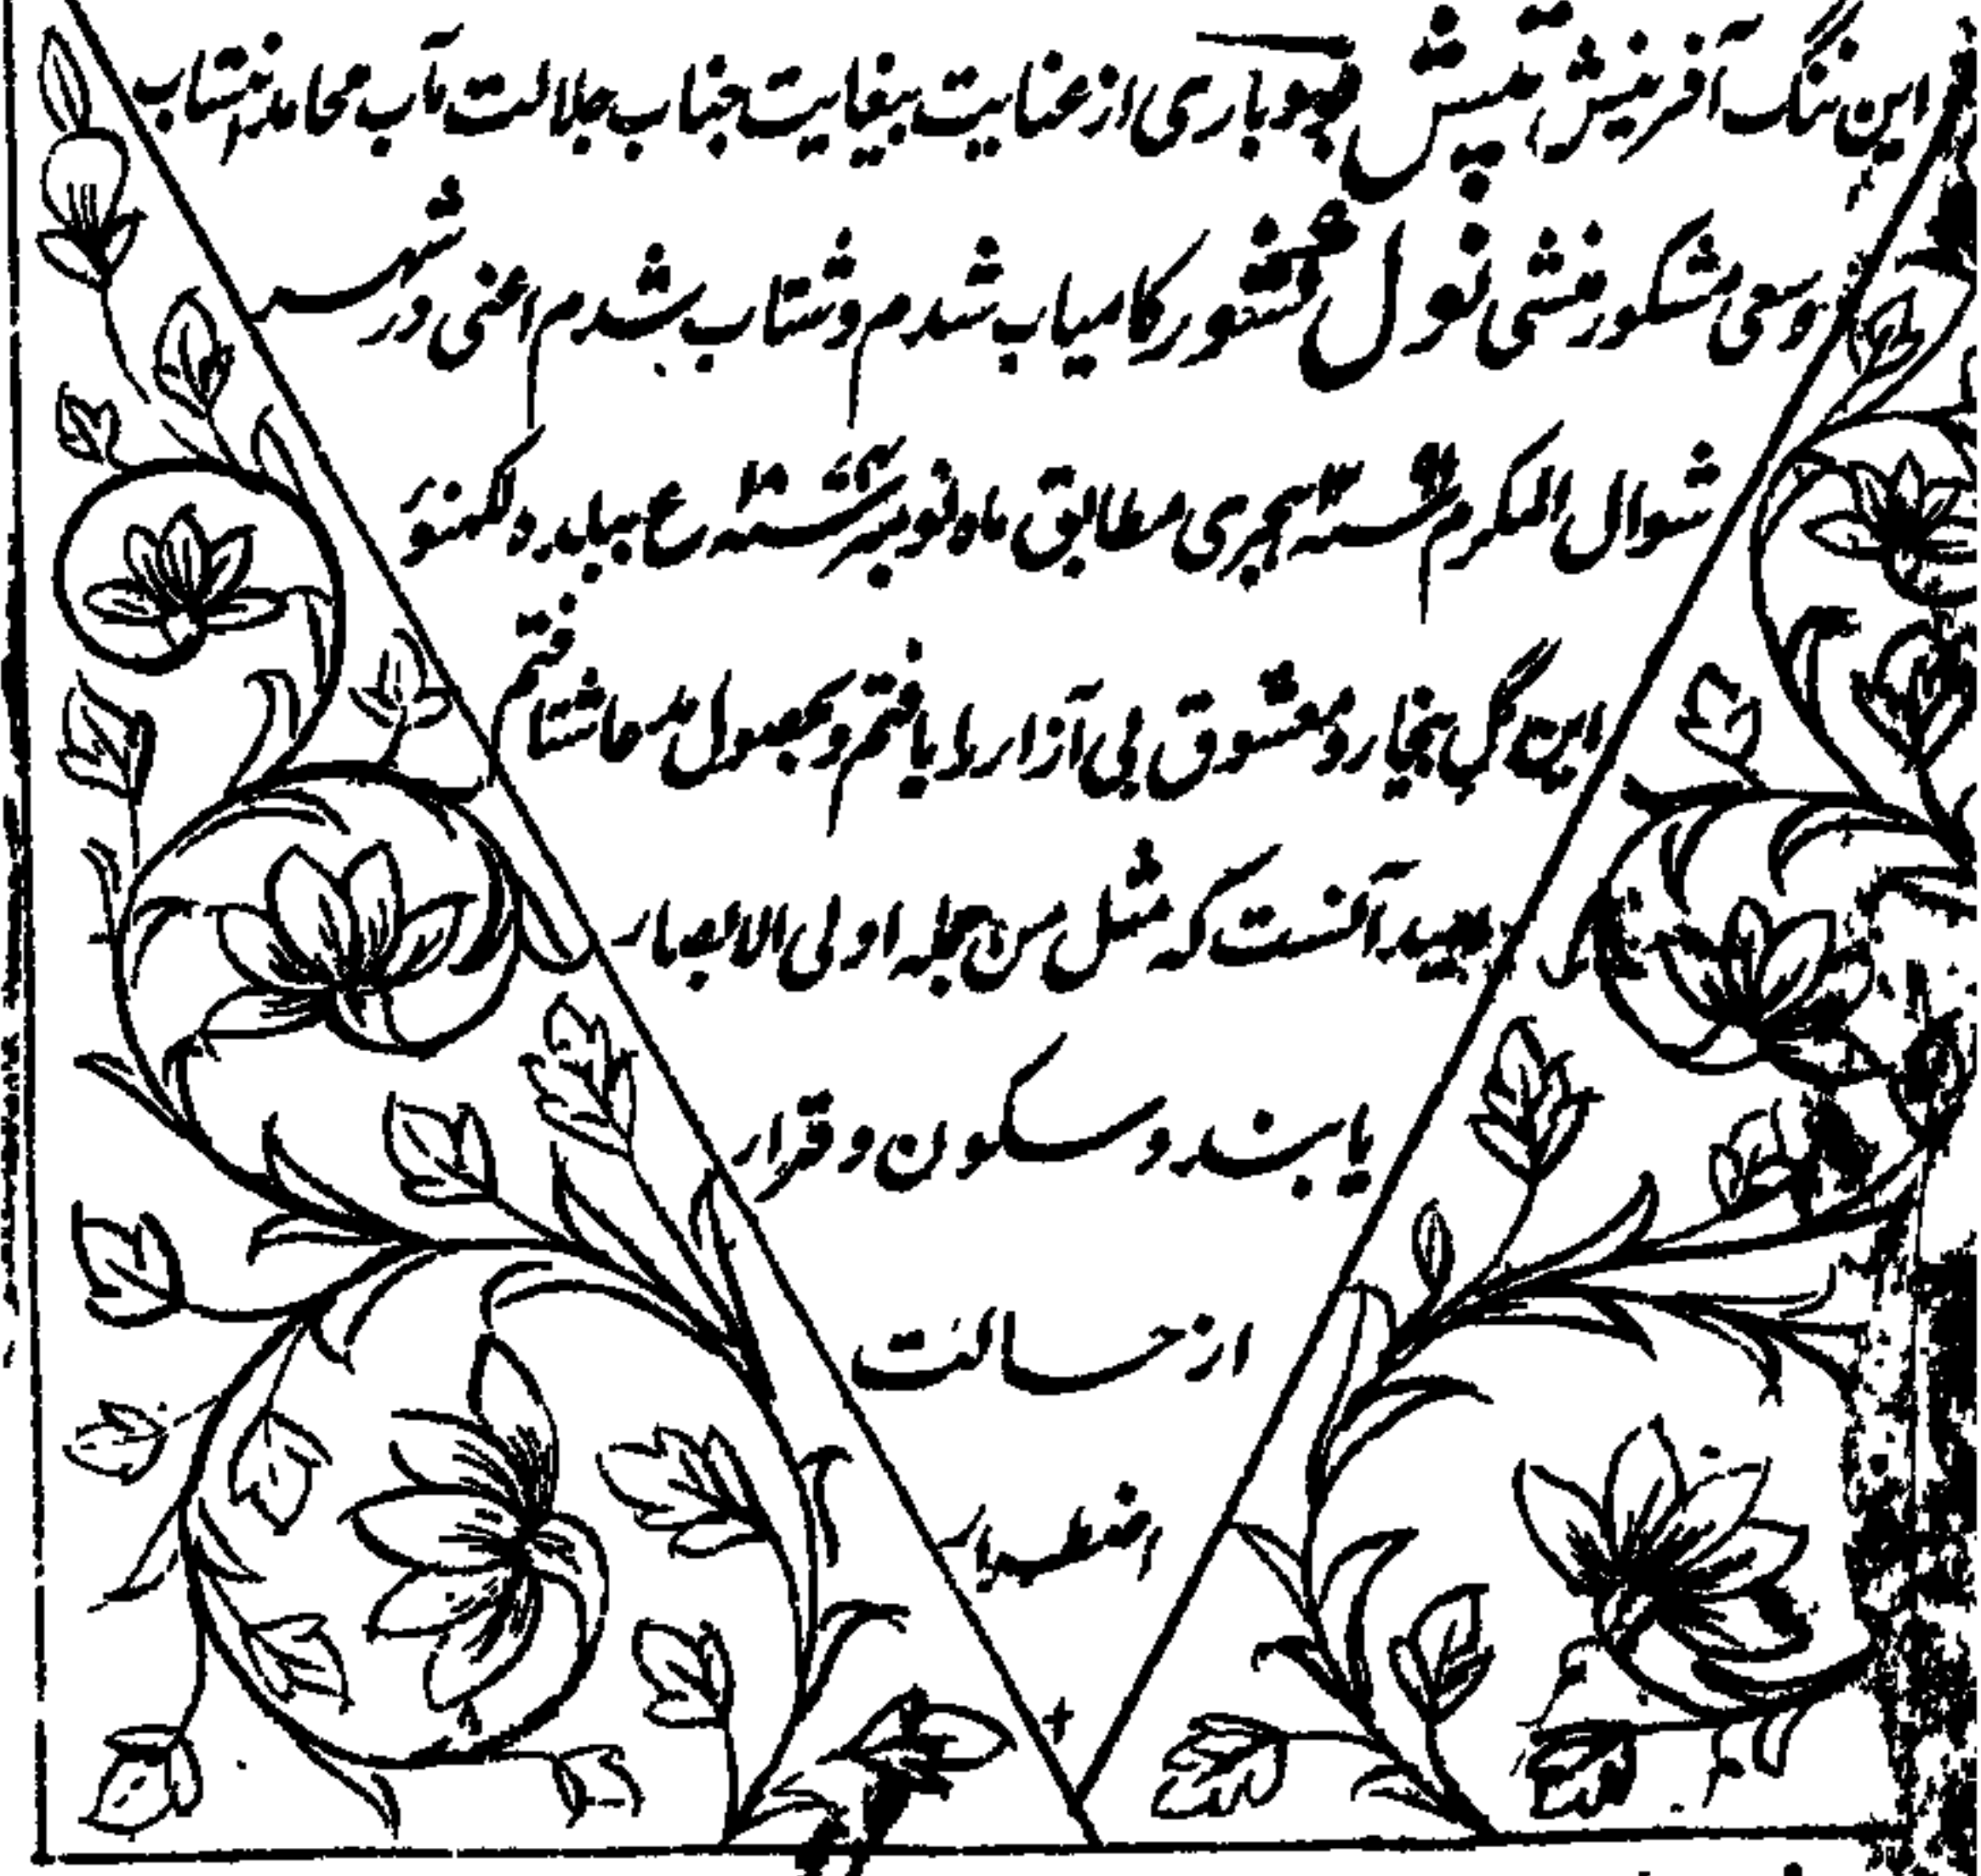 این ننگ آفرینش تپش صهوباری از عنایت بیغایت جناب جلالت مآب محامد انتساب
وسعی مشکور منشی نول کشور کامیاب شدم و شتاب بشدم اعنی در شهر
شوال المکرم سنه هجری مطابق ماه نومبر سنه ع ببلده لکهنؤ
این گل بیخار و معشوق بی آزار را یافتم و بحصول مدعا شتافتم
امید آنست که مثل من جمله اولی الابصار
یابند و سکون و قرار
از حالت
اضطرار